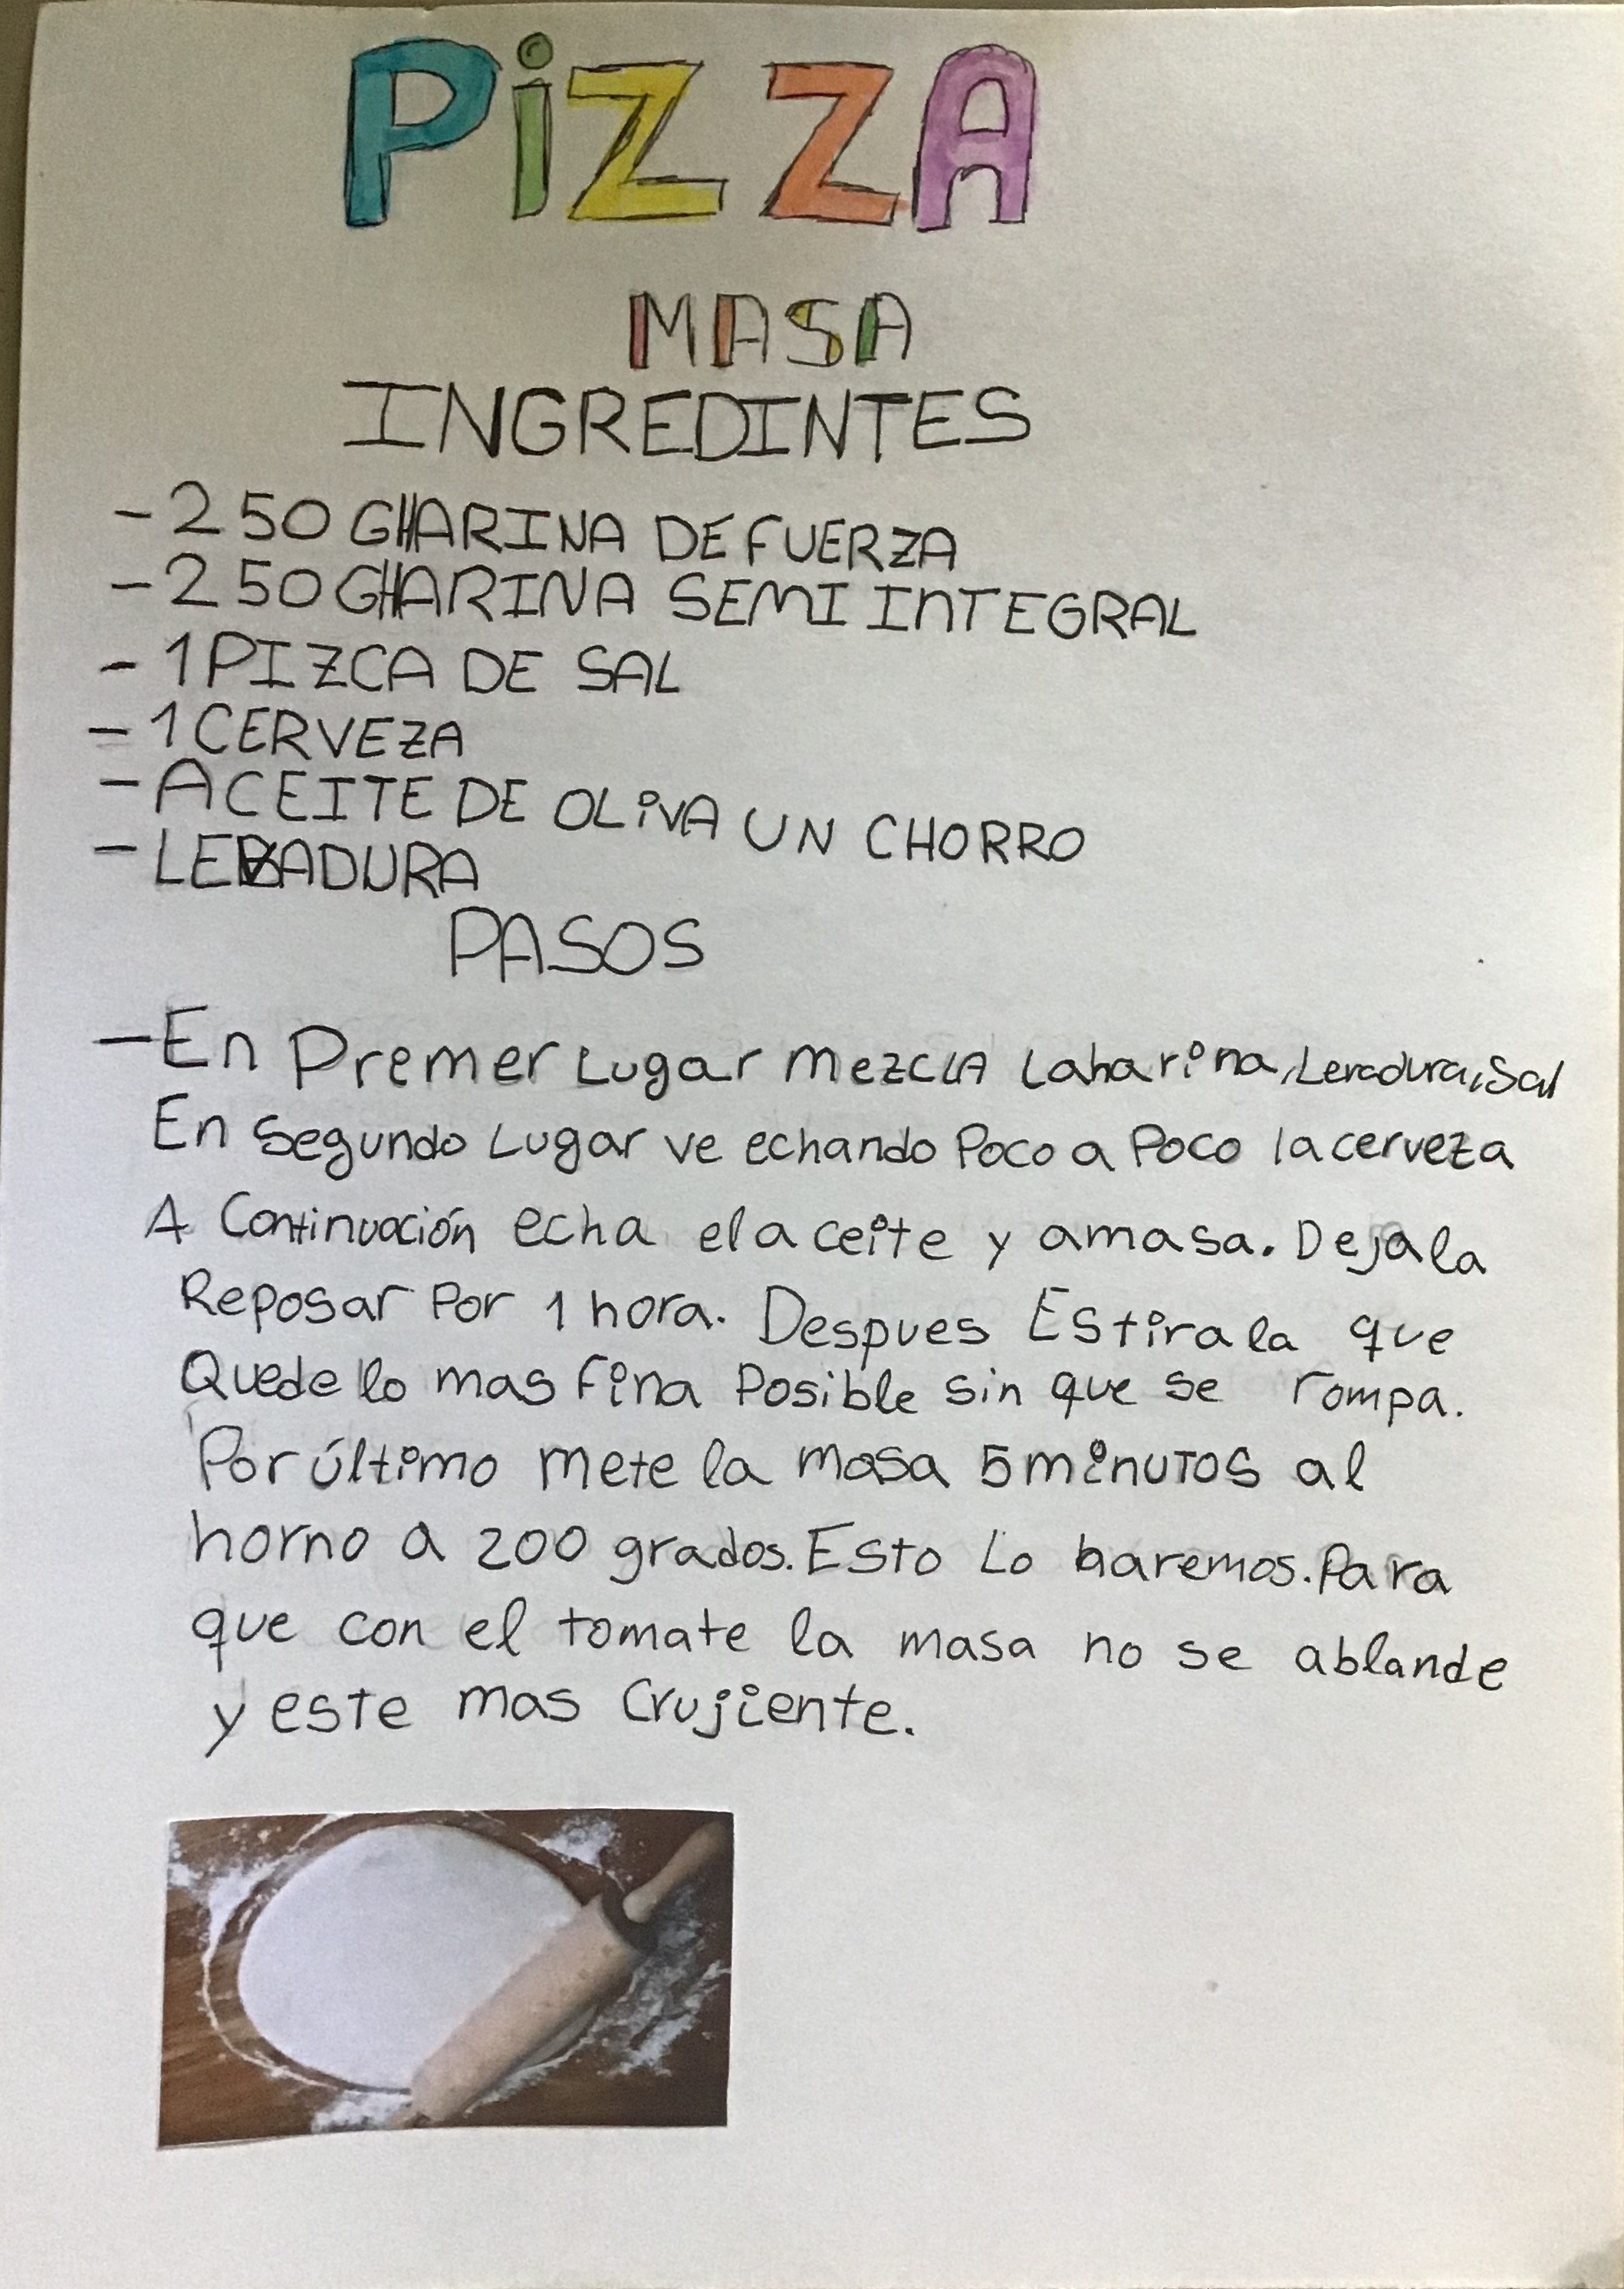 PiZZA
MASA
INGREDINTES
- 250 G HARINA DE FUERZA
- 250 G HARINA SEMI INTEGRAL
- 1 PIZCA DE SAL
- 1 CERVEZA
- ACEITE DE OLiVA UN CHORRO
- LEVADURA
PASOS
- En Premer Lugar mezcLA La harina, Levadura, Sal
En Segundo Lugar ve echando Poco a Poco la cerveza
A Continuación echa el aceite y amasa. Dejala
Reposar Por 1 hora. Despues Estirala que
Quede lo mas Fina Posible sin que se rompa.
Por último mete la masa 5 minuTOS al
horno a 200 grados. Esto Lo haremos. Para
que con el tomate la masa no se ablande
y este mas Crujiente.